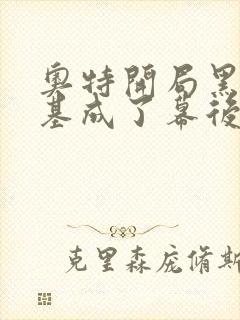 奧特開局黑
基成了幕後
克里森龐脩斯